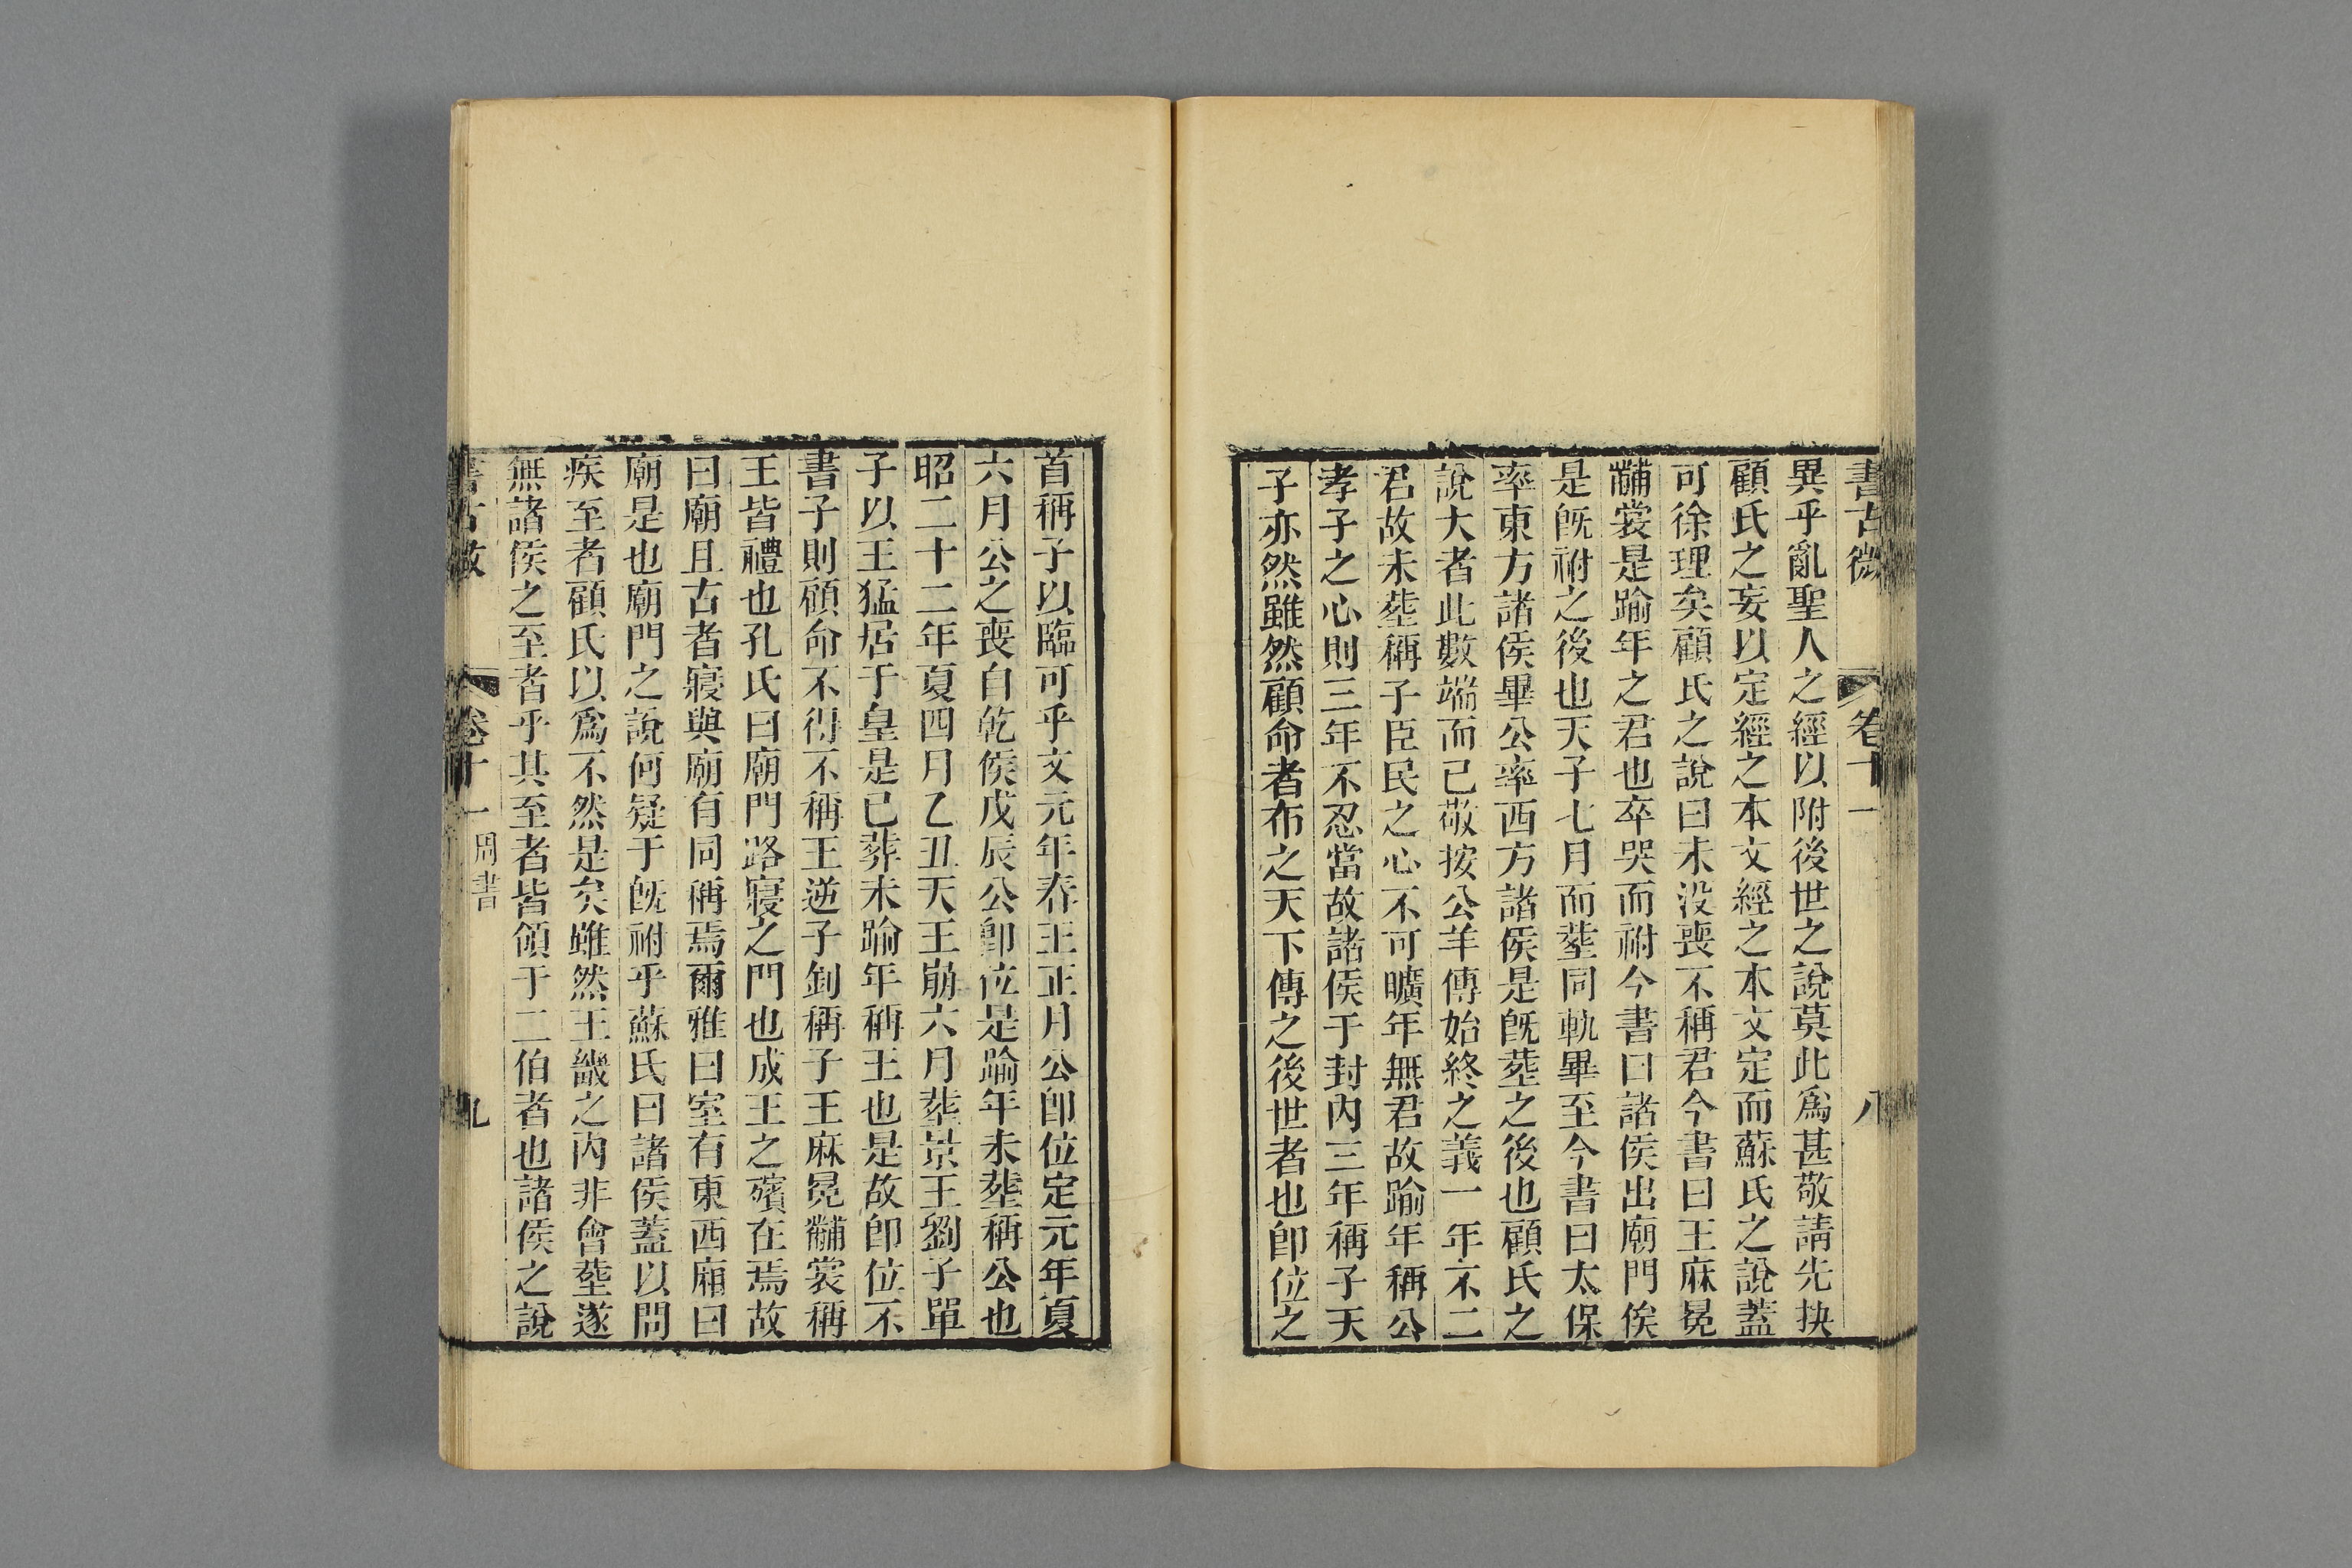 書古微 卷十一 八
異乎亂聖人之經以附後世之說莫此爲甚敬請先抉
顧氏之妄以定經之本文經之本文定而蘇氏之說蓋
可徐理矣顧氏之說曰未没喪不稱君今書曰王麻冕
黼裳是踰年之君也卒哭而祔今書曰諸侯出廟門俟
是旣祔之後也天子七月而塟同軌畢至今書曰太保
率東方諸侯畢公率西方諸侯是旣塟之後也顧氏之
說大者此數端而已敬按公羊傳始終之義一年不二
君故未塟稱子臣民之心不可曠年無君故踰年稱公
孝子之心則三年不忍當故諸侯于封內三年稱子天
子亦然雖然顧命者布之天下傳之後世者也卽位之
首稱子以臨可乎文元年春王正月公卽位定元年夏
六月公之喪自乾侯戊辰公卽位是踰年未塟稱公也
昭二十二年夏四月乙丑天王崩六月葬景王劉子單
子以王猛居于皇是已葬未踰年稱王也是故卽位不
書子則顧命不得不稱王逆子釗稱子王麻冕黼裳稱
王皆禮也孔氏曰廟門路寢之門也成王之殯在焉故
曰廟且古者寢與廟有同稱焉爾雅曰室有東西廂曰
廟是也廟門之說何疑于旣祔乎蘇氏曰諸侯蓋以問
疾至者顧氏以爲不然是矣雖然王畿之內非會塟遂
無諸侯之至者乎其至者皆領于二伯者也諸侯之說
書古微 卷十一 周書 九